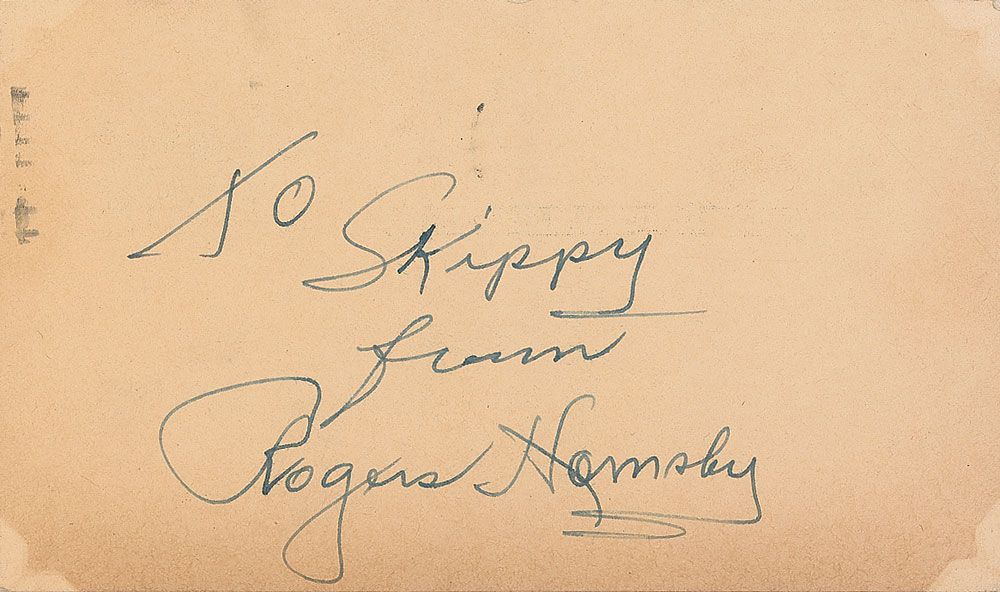 To Skippy
from
Rogers Hornsby